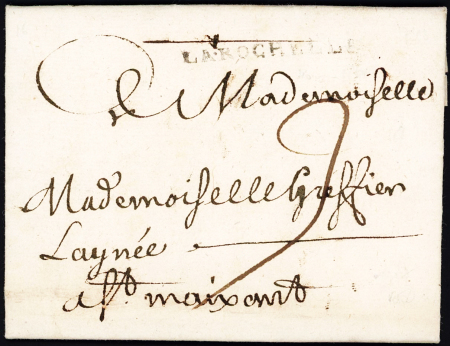 LAROCHELLE
A Mademoiselle
Mademoiselle Greffier
Laynée
a St maixant